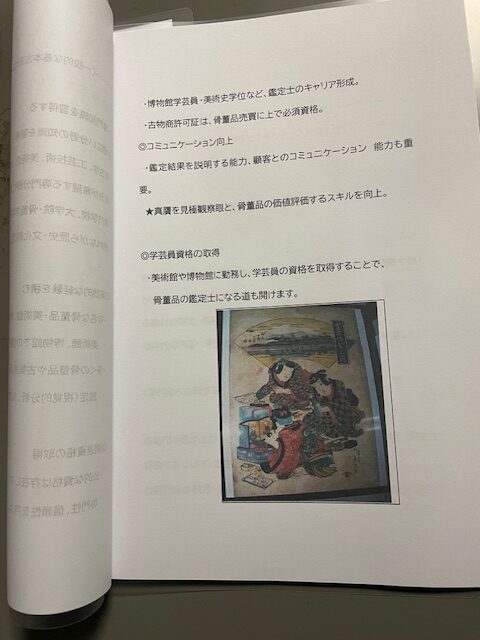 ・博物館学芸員・美術史学位など、鑑定士のキャリア形成。
・古物商許可証は、骨董品売買に上で必須資格。
◎コミュニケーション向上
・鑑定結果を説明する能力、顧客とのコミュニケーション 能力も重
要。
★真贋を見極観察眼と、骨董品の価値評価するスキルを向上。
◎学芸員資格の取得
・美術館や博物館に勤務し、学芸員の資格を取得することで、
骨董品の鑑定士になる道も開けます。